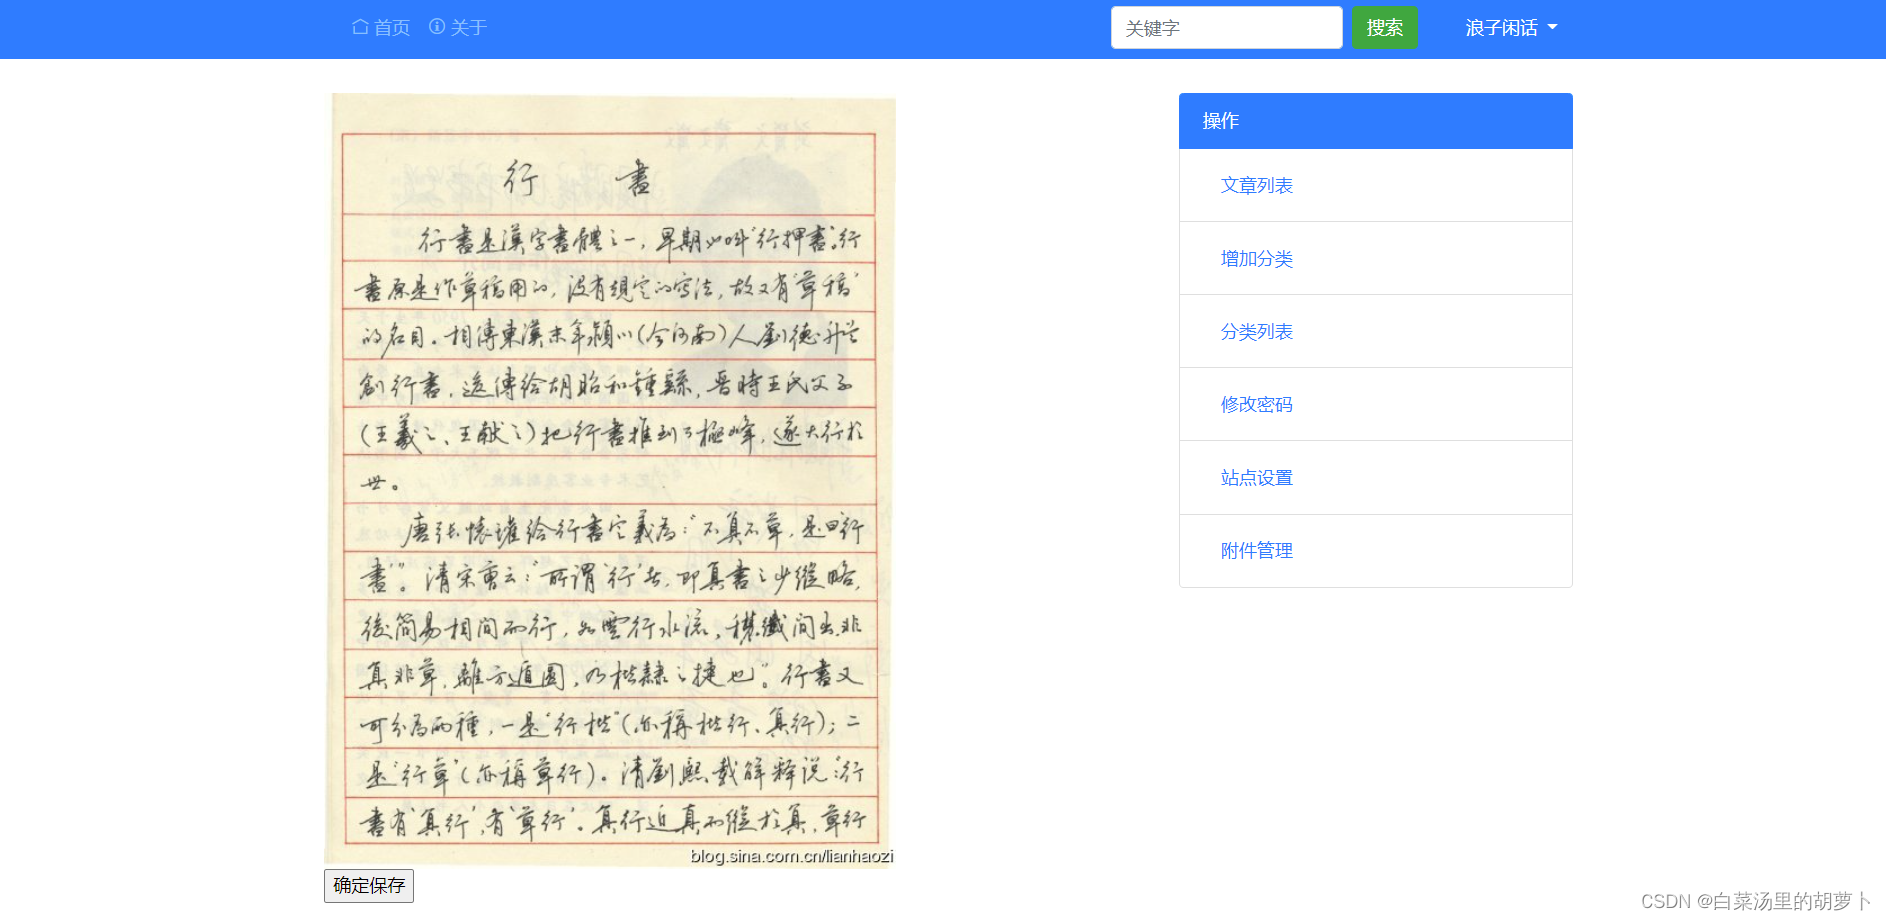 首页 关于 关键字 搜索 浪子闲话
行 書
行書是漢字書體之一，早期也叫“行押書”。行
書原是作草稿用的，没有規定的寫法，故又有“草稿”
的名目。相傳東漢末年潁川（今河南）人劉德升首
創行書，後傳给胡昭和鍾繇，晋時王氏父子
（王羲之、王献之）把行書推到了極峰，遂大行於
世。
唐張懷瓘给行書定義爲：“不真不草，是曰行
書”。清宋曹云：“所謂‘行’者，即真書之少縱略，
後簡易相間而行，如雲行水流，穠纖間出，非
真非草，離方遁圓，乃楷隸之捷也”。行書又
可分爲两種，一是“行楷”（亦稱楷行、真行）；二
是“行草”（亦稱草行）。清劉熙載解释说：“行
書有‘真行’，有‘草行’。真行近真而縱於真，草行
blog.sina.com.cn/lianhaozi
确定保存
操作
文章列表
增加分类
分类列表
修改密码
站点设置
附件管理
CSDN @白菜汤里的胡萝卜